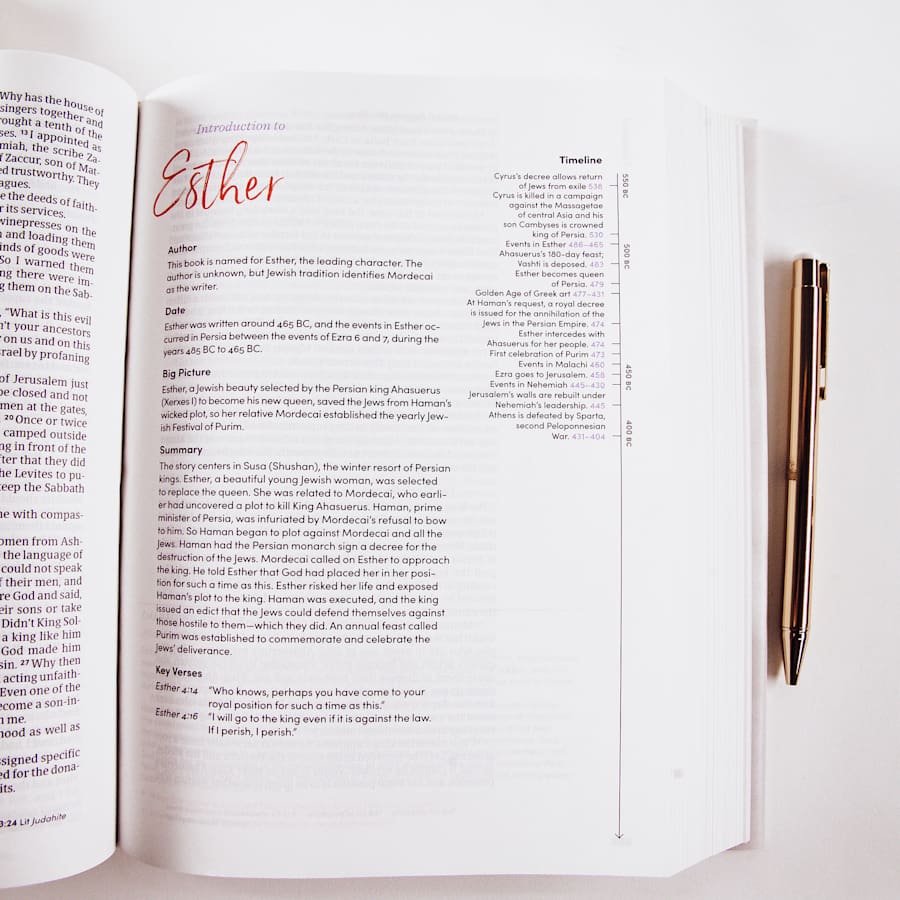 Why has the house of
singers together and
ought a tenth of the
ses. 13 I appointed as
miah, the scribe Za-
f Zaccur, son of Mat-
ed trustworthy. They
agues.
e the deeds of faith-
r its services.
winepresses on the
n and loading them
inds of goods were
So I warned them
ng there were im-
g them on the Sab-
, “What is this evil
n’t your ancestors
on us and on this
rael by profaning
of Jerusalem just
be closed and not
men at the gates,
20 Once or twice
camped outside
ng in front of the
fter that they did
he Levites to pu-
keep the Sabbath
ne with compas-
omen from Ash-
the language of
could not speak
f their men, and
re God and said,
eir sons or take
Didn’t King Sol-
a king like him
God made him
sin. 27 Why then
acting unfaith-
Even one of the
ecome a son-in-
m me.
hood as well as
ssigned specific
ed for the dona-
its.
3:24 Lit Judahite
Introduction to
Esther
Author
This book is named for Esther, the leading character. The
author is unknown, but Jewish tradition identifies Mordecai
as the writer.
Date
Esther was written around 465 BC, and the events in Esther oc-
curred in Persia between the events of Ezra 6 and 7, during the
years 485 BC to 465 BC.
Big Picture
Esther, a Jewish beauty selected by the Persian king Ahasuerus
(Xerxes I) to become his new queen, saved the Jews from Haman’s
wicked plot, so her relative Mordecai established the yearly Jew-
ish Festival of Purim.
Summary
The story centers in Susa (Shushan), the winter resort of Persian
kings. Esther, a beautiful young Jewish woman, was selected
to replace the queen. She was related to Mordecai, who earli-
er had uncovered a plot to kill King Ahasuerus. Haman, prime
minister of Persia, was infuriated by Mordecai’s refusal to bow
to him. So Haman began to plot against Mordecai and all the
Jews. Haman had the Persian monarch sign a decree for the
destruction of the Jews. Mordecai called on Esther to approach
the king. He told Esther that God had placed her in her posi-
tion for such a time as this. Esther risked her life and exposed
Haman’s plot to the king. Haman was executed, and the king
issued an edict that the Jews could defend themselves against
those hostile to them—which they did. An annual feast called
Purim was established to commemorate and celebrate the
Jews’ deliverance.
Key Verses
Esther 4:14 “Who knows, perhaps you have come to your
royal position for such a time as this.”
Esther 4:16 “I will go to the king even if it is against the law.
If I perish, I perish.”
Timeline
Cyrus’s decree allows return
of Jews from exile 538
Cyrus is killed in a campaign
against the Massagetae
of central Asia and his
son Cambyses is crowned
king of Persia. 530
Events in Esther 486–465
Ahasuerus’s 180-day feast;
Vashti is deposed. 483
Esther becomes queen
of Persia. 479
Golden Age of Greek art 477–431
At Haman’s request, a royal decree
is issued for the annihilation of the
Jews in the Persian Empire. 474
Esther intercedes with
Ahasuerus for her people. 474
First celebration of Purim 473
Events in Malachi 460
Ezra goes to Jerusalem. 458
Events in Nehemiah 445–430
Jerusalem’s walls are rebuilt under
Nehemiah’s leadership. 445
Athens is defeated by Sparta,
second Peloponnesian
War. 431–404
550 BC
500 BC
450 BC
400 BC